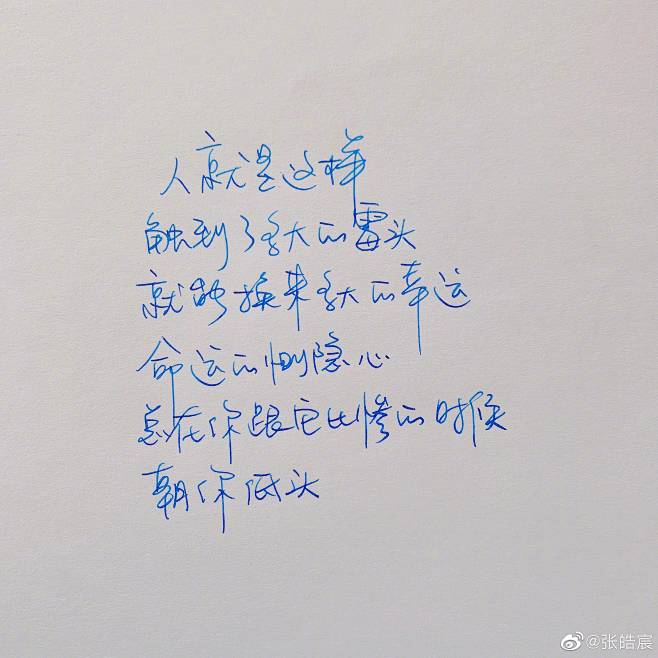 人就是这样
触到了多大的霉头
就能换来多大的幸运
命运的恻隐心
总在你跟它比惨的时候
朝你低头
@张皓宸